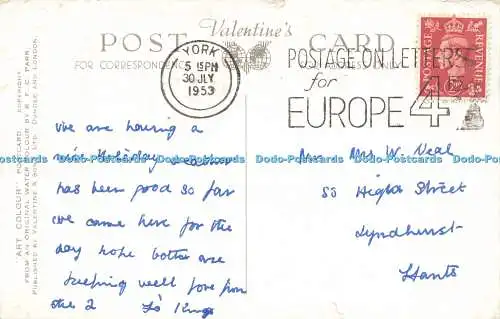 Valentine's
POST CARD
FOR CORRESPONDENCE
"ART COLOUR" POSTCARD. COPYRIGHT.
FROM AN ORIGINAL WATER COLOUR BY E. C. TARR.
PUBLISHED BY VALENTINE & SONS, LTD. DUNDEE AND LONDON.
YORK
5 15 PM
30 JLY
1953
POSTAGE ON LETTERS
for
EUROPE 4D
POSTAGE REVENUE
we are having a
nice Holiday weather
has been good so far
we came here for the
day hope both are
keeping well love from
the 2
Mrs W. Veal
55 High Street
Lyndhurst
Hants
Dodo-Postcards Dodo-Postcards Dodo-Postcards Dodo-Postcards Dodo-Postcards Dodo-Postcards